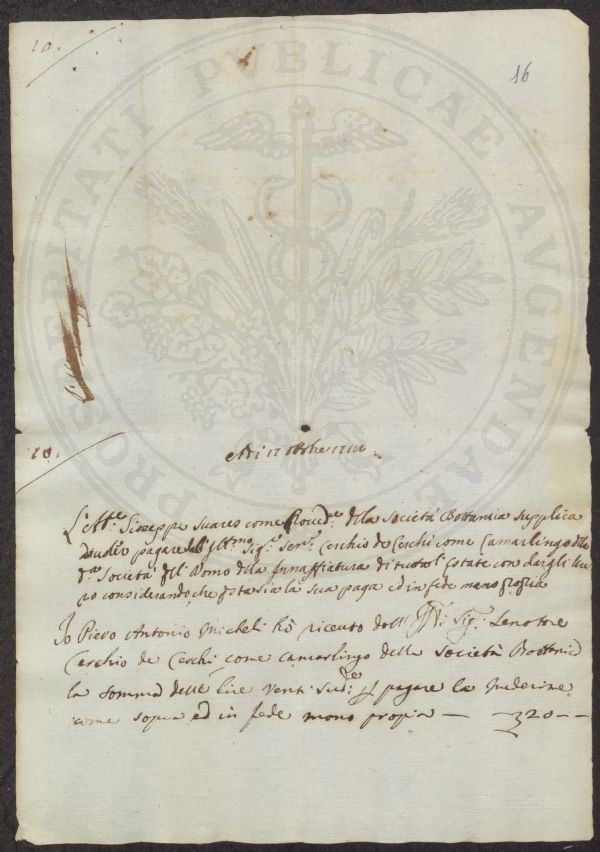 10.
16
PROSPERITATI PVBLICAE AVGENDAE
10.
Adi 17
L'Ab.e Gioseppe Suares come Proved.re della Società Bottanica supplica
pagare dall' Ill.mo Sig.e Sen.re Cerchio de Cerchi come Camarlingo della
d.a Società all' Uomo della Innaffiatura di tutto l' Estate con dargli
considerando, che sia la sua paga ed in fede mano propria
Io Piero Antonio Micheli hò riceuto dall' Ill: Sig.r Senatore
Cerchio de Cerchi come Camarlingo della Società Bottanica
la somma delle lire venti Sud.e p pagare la medesime
come sopra ed in fede mano propia — 20 — —